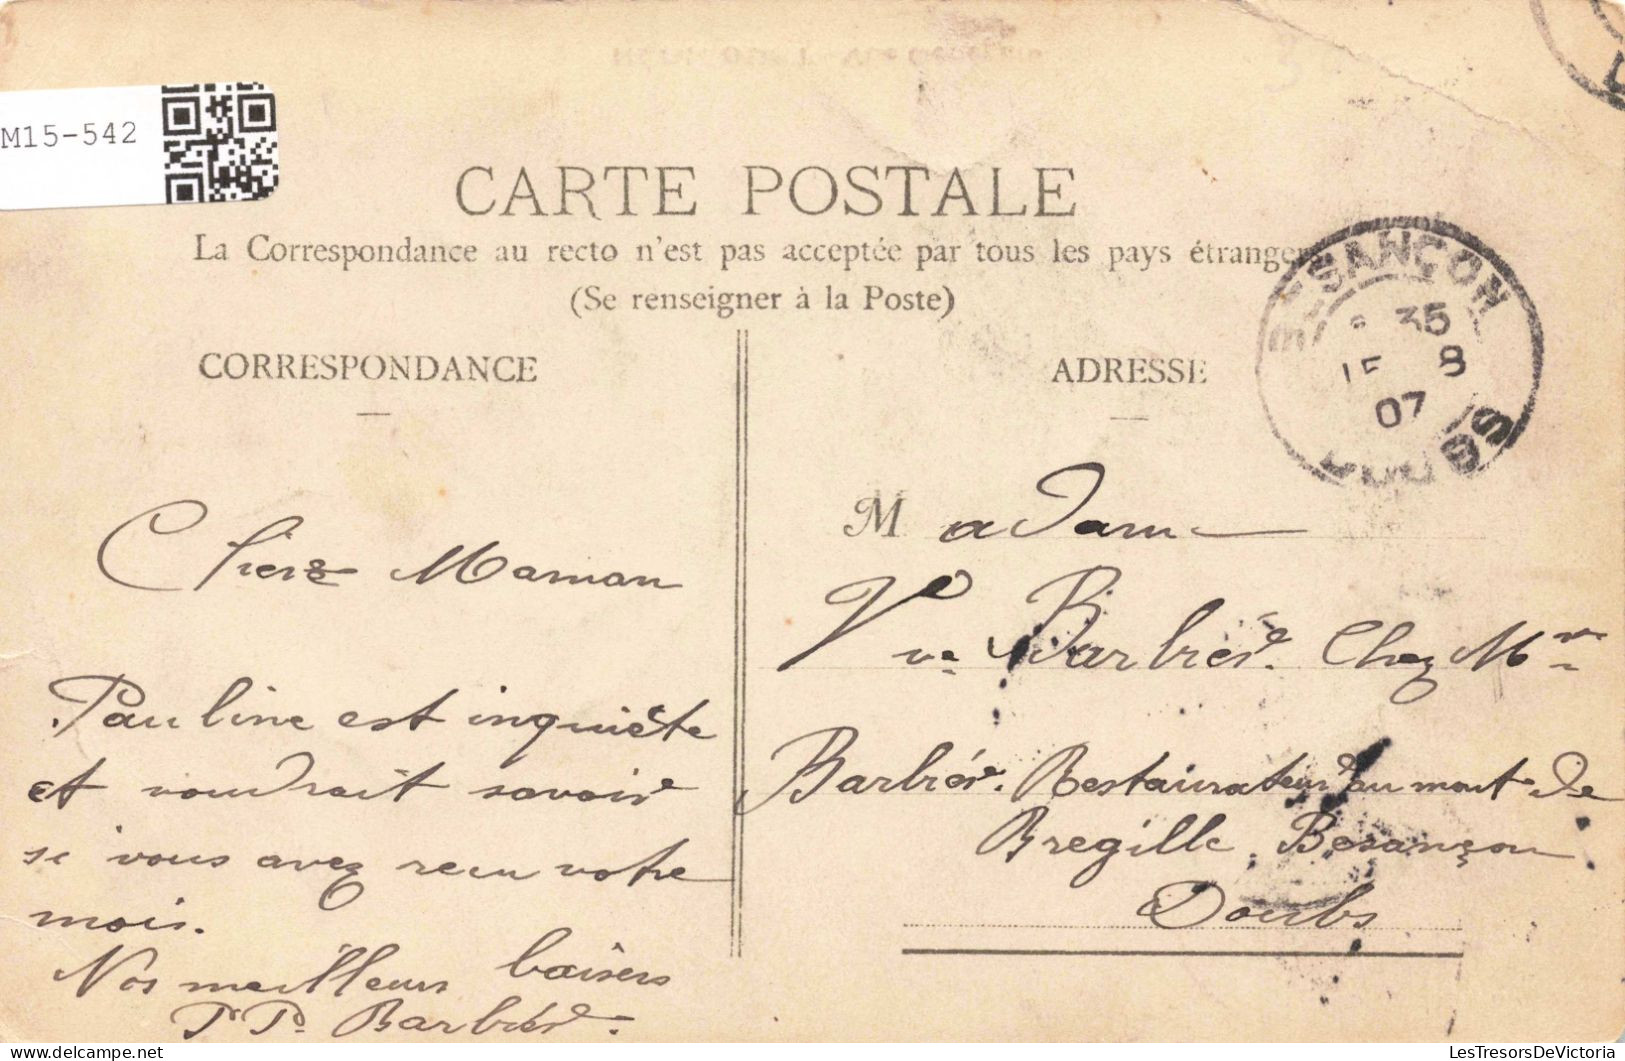 M15-542
CARTE POSTALE
La Correspondance au recto n'est pas acceptée par tous les pays étrangers
(Se renseigner à la Poste)
CORRESPONDANCE
ADRESSE
BESANÇON
35
15 8
07
DOUBS
Chère Maman
Pauline est inquiète
et voudrait savoir
si vous avez reçu votre
mois.
Nos meilleurs baisers
P. P. Barbier.
Madame
Vve Barbier. Chez Mr
Barbier. Restaurateur au mont de
Bregille. Besançon
Doubs
LesTresorsDeVictoria